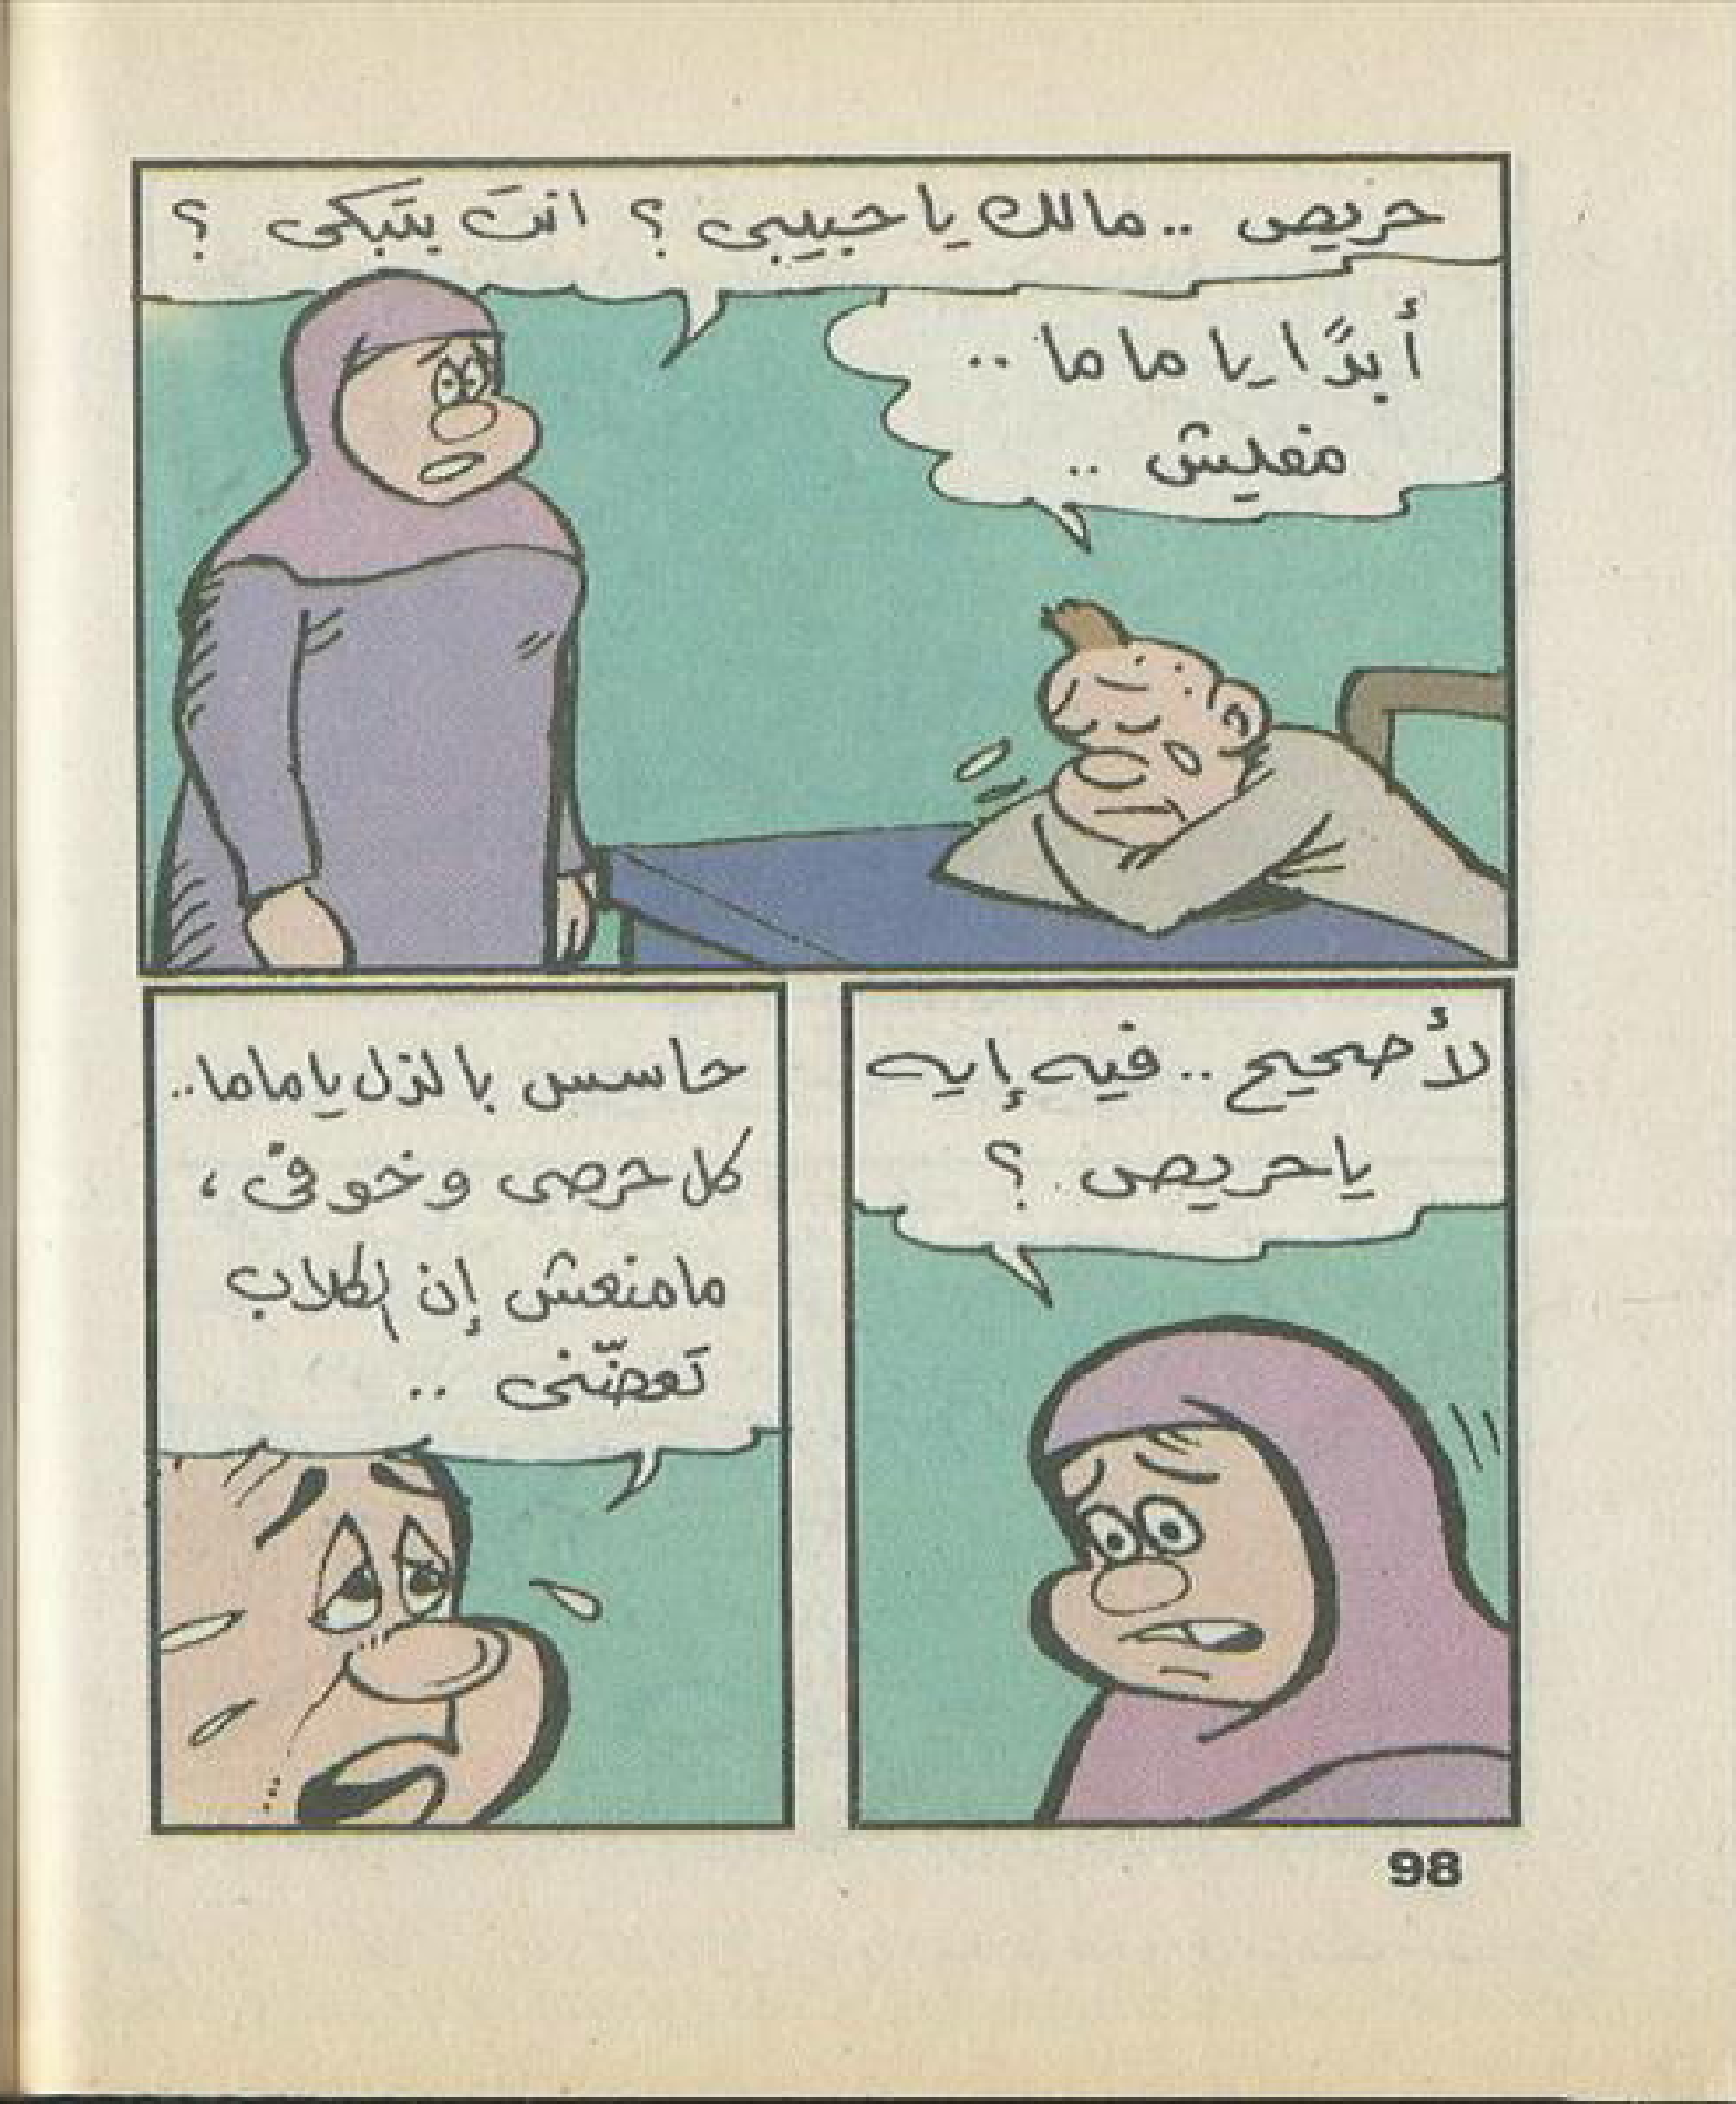 حريص .. مالك يا حبيبى ؟ انتَ بتبكى ؟
أبدًا يا ماما ..
مفيش ..
لأ صحيح .. فيه إيه
يا حريص ؟
حاسس بالذل يا ماما ..
كل حرصى وخوفى ،
مامنعش إن الكلاب
تعضّنى ..
98